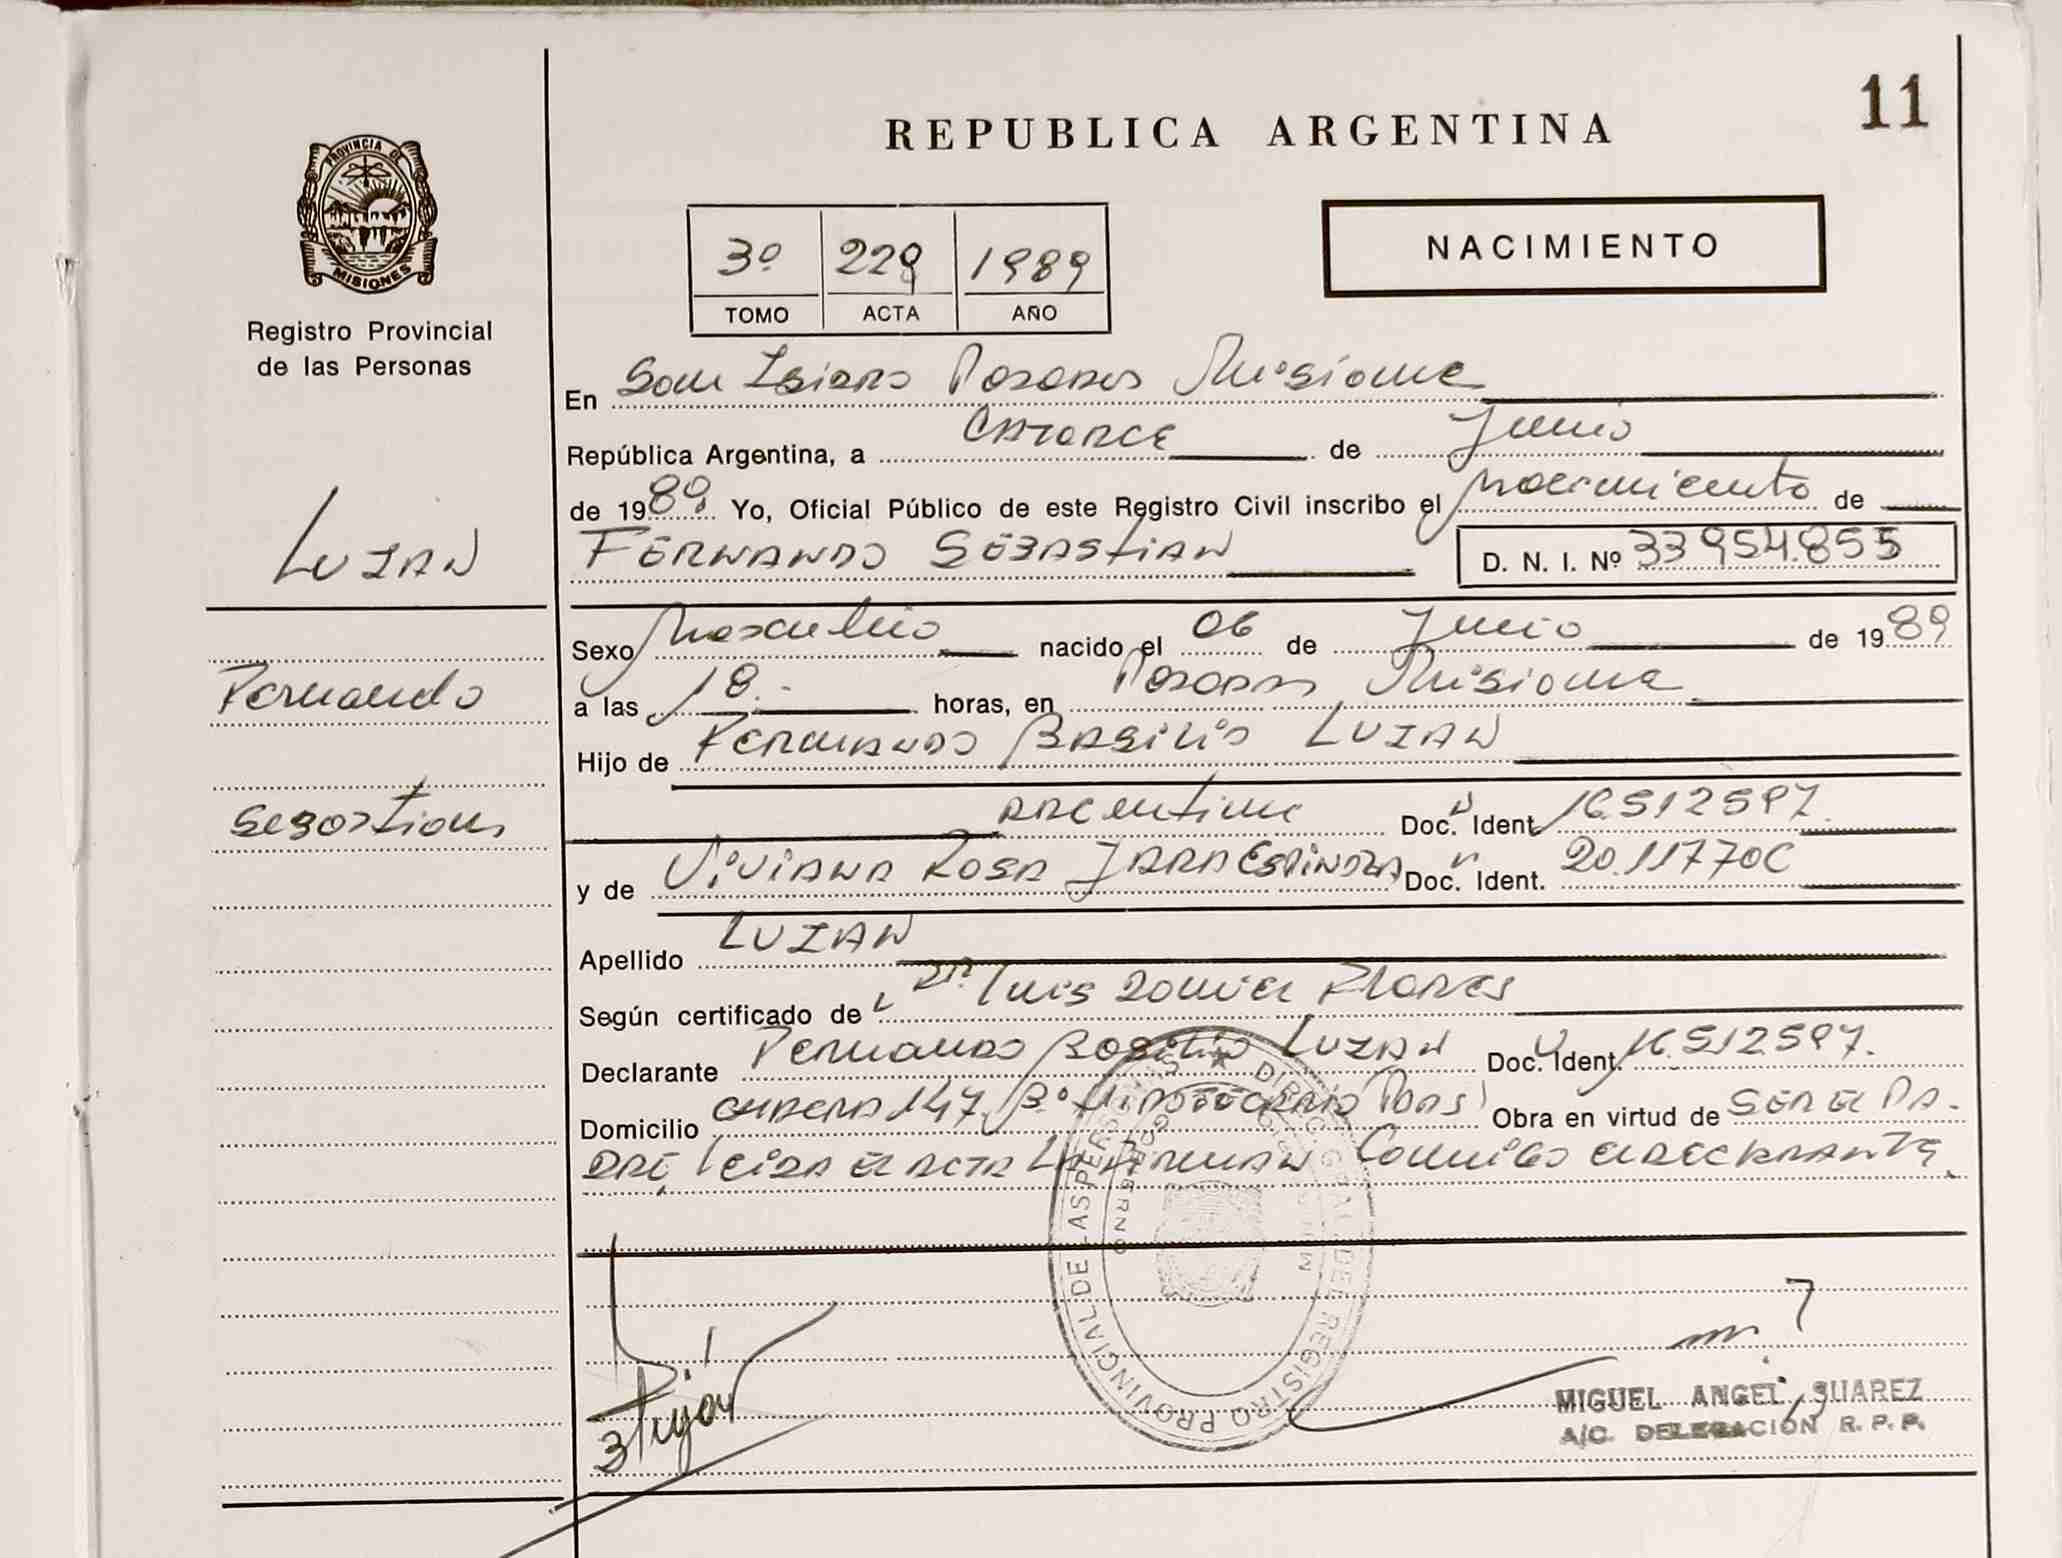 11
REPUBLICA ARGENTINA
PROVINCIA DE
MISIONES
Registro Provincial
de las Personas
NACIMIENTO
3º 229 1989
TOMO ACTA AÑO
En San Isidro Posadas Misiones
República Argentina, a CATORCE de Junio
de 1989 Yo, Oficial Público de este Registro Civil inscribo el nacimiento de
LUZAN
FERNANDO SEBASTIAN D. N. I. Nº 33954.855
Sexo Masculino nacido el 06 de Junio de 1989
Fernando
a las 18.- horas, en Posadas Misiones
Hijo de FERNANDO BASILIO LUZAN
Sebastian
ARGENTINO Doc. Ident 16.512.597.
y de VIVIANA ROSA JARA ESPINOZA Doc. Ident. 20.117.706
Apellido LUZAN
Según certificado de Dr. Luis Daniel Flores
Declarante Fernando Basilio LUZAN Doc. Ident. 16.512.597.
Domicilio 147 Bº Obra en virtud de SER EL PA-
DRE, LEIDA EL ACTA LA FIRMAN Conmigo EL DECLARANTE.
DIREC. GRAL. DEL REGISTRO PROVINCIAL DE LAS PERSONAS
MIGUEL ANGEL SUAREZ
A/C. DELEGACION R. P. P.